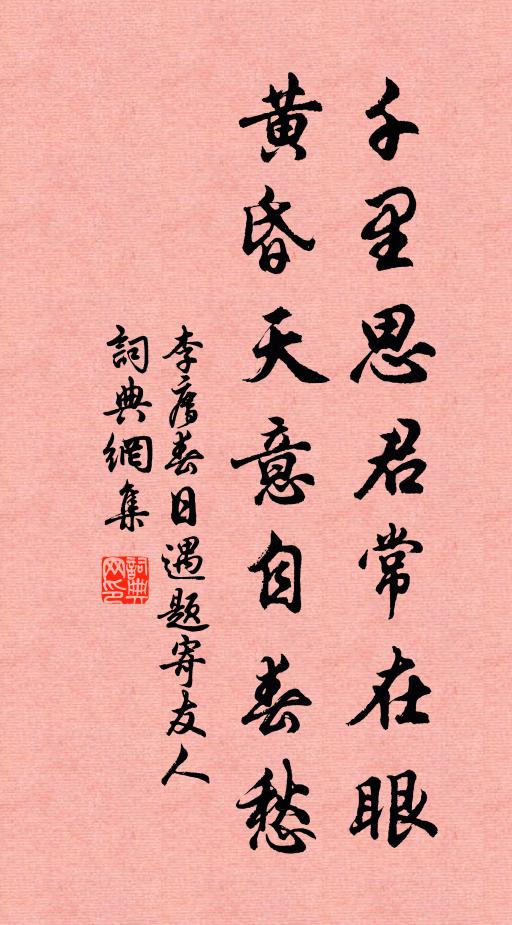 千里思君常在眼
黄昏天意自春愁
李廌春日遇题寄友人
詞典網集
詞典网印